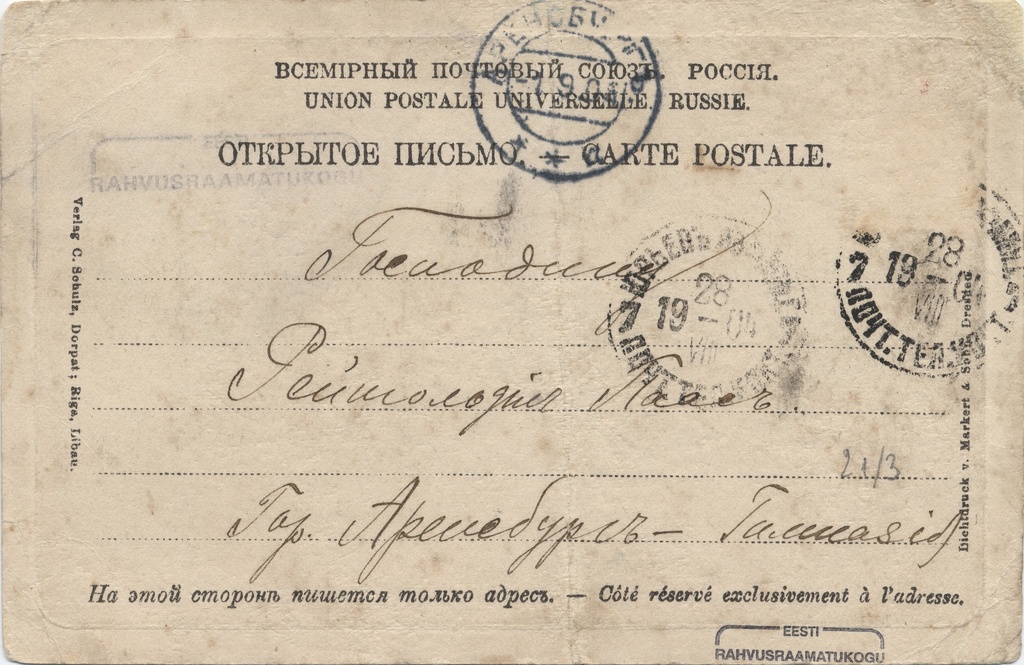 ВСЕМІРНЫЙ ПОЧТОВЫЙ СОЮЗЪ. РОССІЯ.
UNION POSTALE UNIVERSELLE. RUSSIE.
ОТКРЫТОЕ ПИСЬМО. — CARTE POSTALE.
АРЕНСБУРГЪ
EESTI
RAHVUSRAAMATUKOGU
Господину
ЮРЬЕВЪ
28
7 19 — 04
VIII
28
7 19 — 04
VIII
ПОЧТ. ТЕЛ.
Verlag C. Schulz, Dorpat; Riga, Libau.
Dichtdruck v. Markert & Sohn, Dresden
21/3
Гор. Аренсбургъ — Гимназія
На этой сторонѣ пишется только адресъ. — Côté réservé exclusivement à l'adresse.
EESTI
RAHVUSRAAMATUKOGU